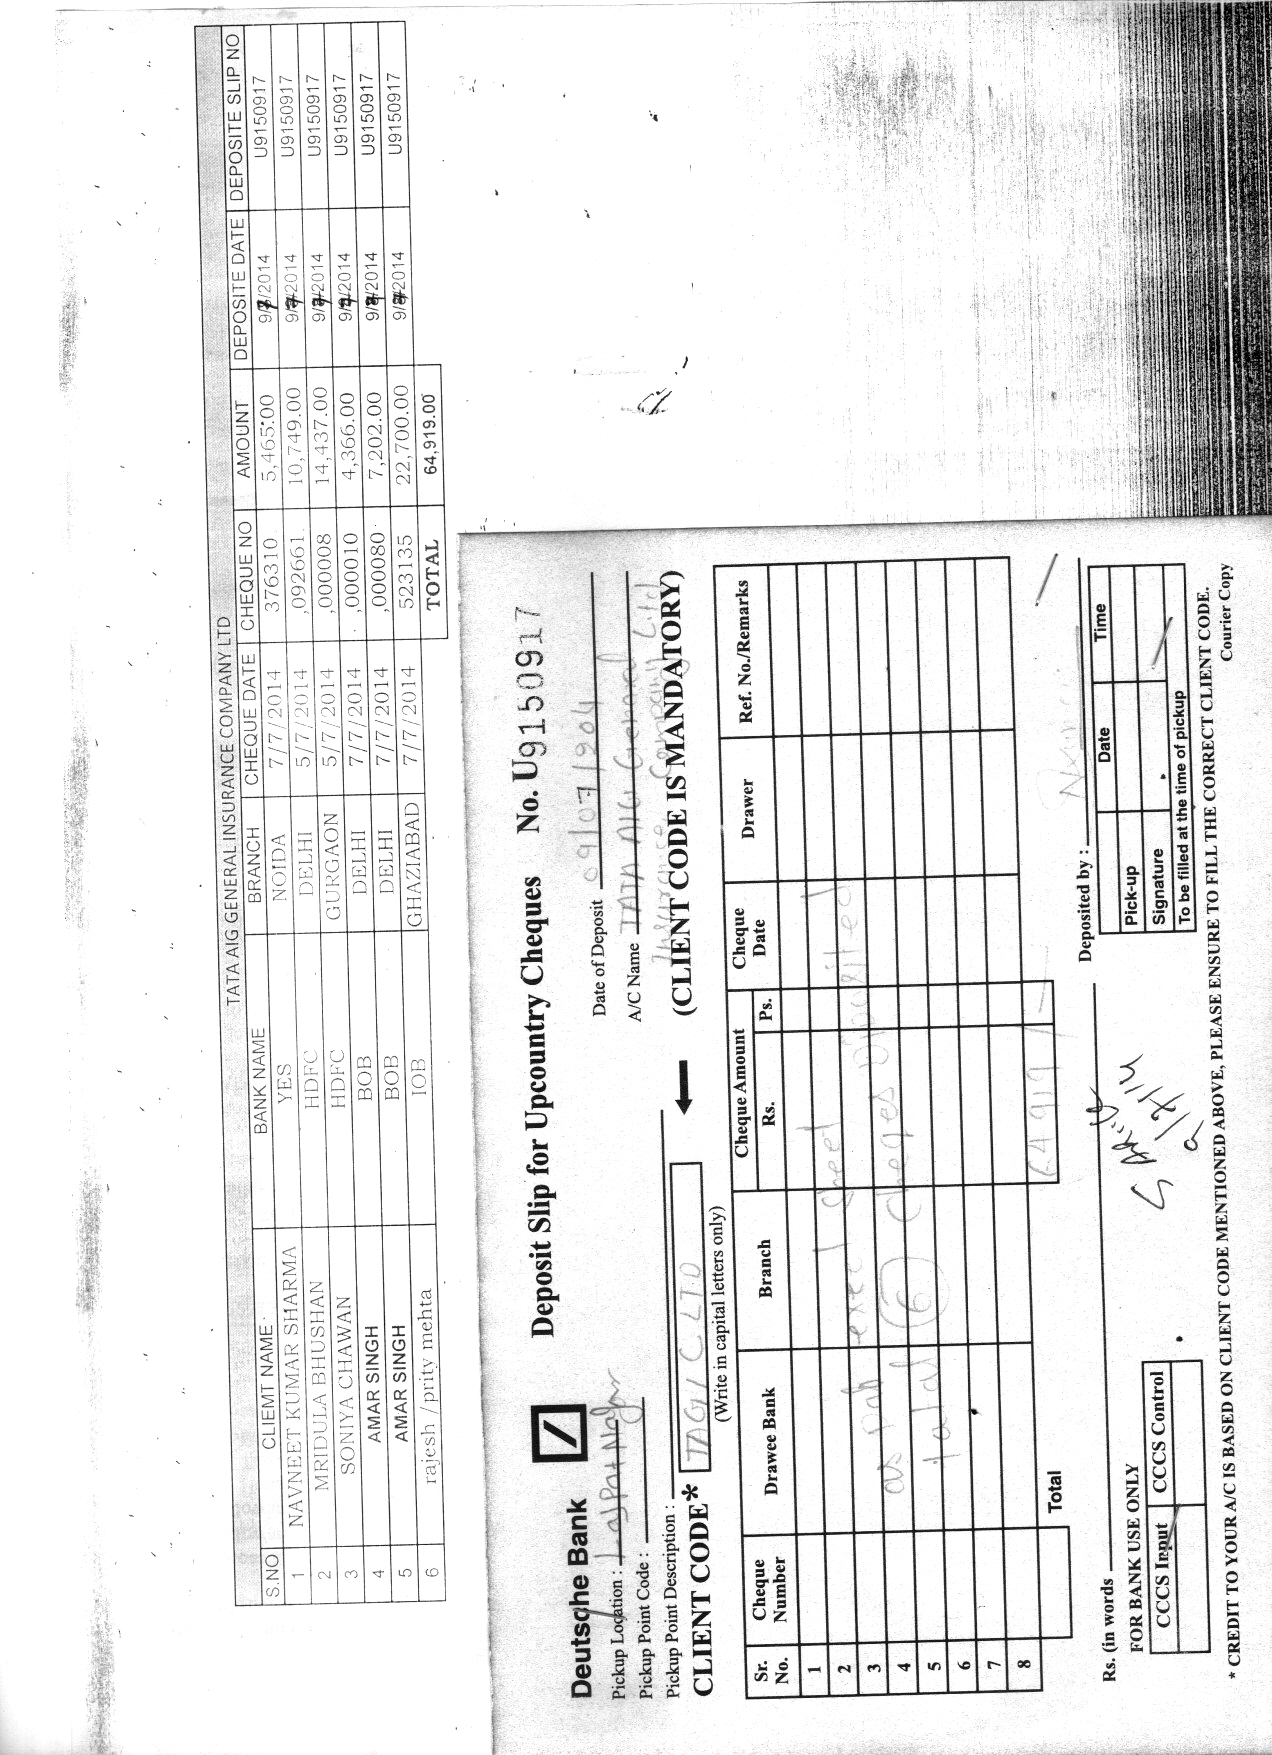 TATA AIG GENERAL INSURANCE COMPANY LTD
S.NO CLIEMT NAME BANK NAME BRANCH CHEQUE DATE CHEQUE NO AMOUNT DEPOSITE DATE DEPOSITE SLIP NO
1 NAVNEET KUMAR SHARMA YES NOIDA 7/7/2014 376310 5,465.00 U9150917
2 MRIDULA BHUSHAN HDFC DELHI 5/7/2014 ,092661 10,749.00 U9150917
3 SONIYA CHAWAN HDFC GURGAON 5/7/2014 ,000008 14,437.00 U9150917
4 AMAR SINGH BOB DELHI 7/7/2014 ,000010 4,366.00 U9150917
5 AMAR SINGH BOB DELHI 7/7/2014 ,000080 7,202.00 U9150917
6 rajesh / prity mehta IOB GHAZIABAD 7/7/2014 523135 22,700.00 U9150917
TOTAL 64,919.00
Deutsche Bank Deposit Slip for Upcountry Cheques No. U9150917
Pickup Location : Lajpat Nagar Date of Deposit 09/07/2014
Pickup Point Code : A/C Name TATA AIG General
Pickup Point Description : Insurance Company Ltd
CLIENT CODE* TAGIC LTD (CLIENT CODE IS MANDATORY)
(Write in capital letters only)
Sr. No. Cheque Number Drawee Bank Branch Cheque Amount Rs. Ps. Cheque Date Drawer Ref. No./Remarks
1
2 exel sheet
3 as par
4 (6) cheques Deposited
5 total
6
7
8
Total 64919/-
Rs. (in words Deposited by :
FOR BANK USE ONLY
CCCS Input CCCS Control
9/7/14
Date Time
Pick-up
Signature
To be filled at the time of pickup
* CREDIT TO YOUR A/C IS BASED ON CLIENT CODE MENTIONED ABOVE, PLEASE ENSURE TO FILL THE CORRECT CLIENT CODE.
Courier Copy